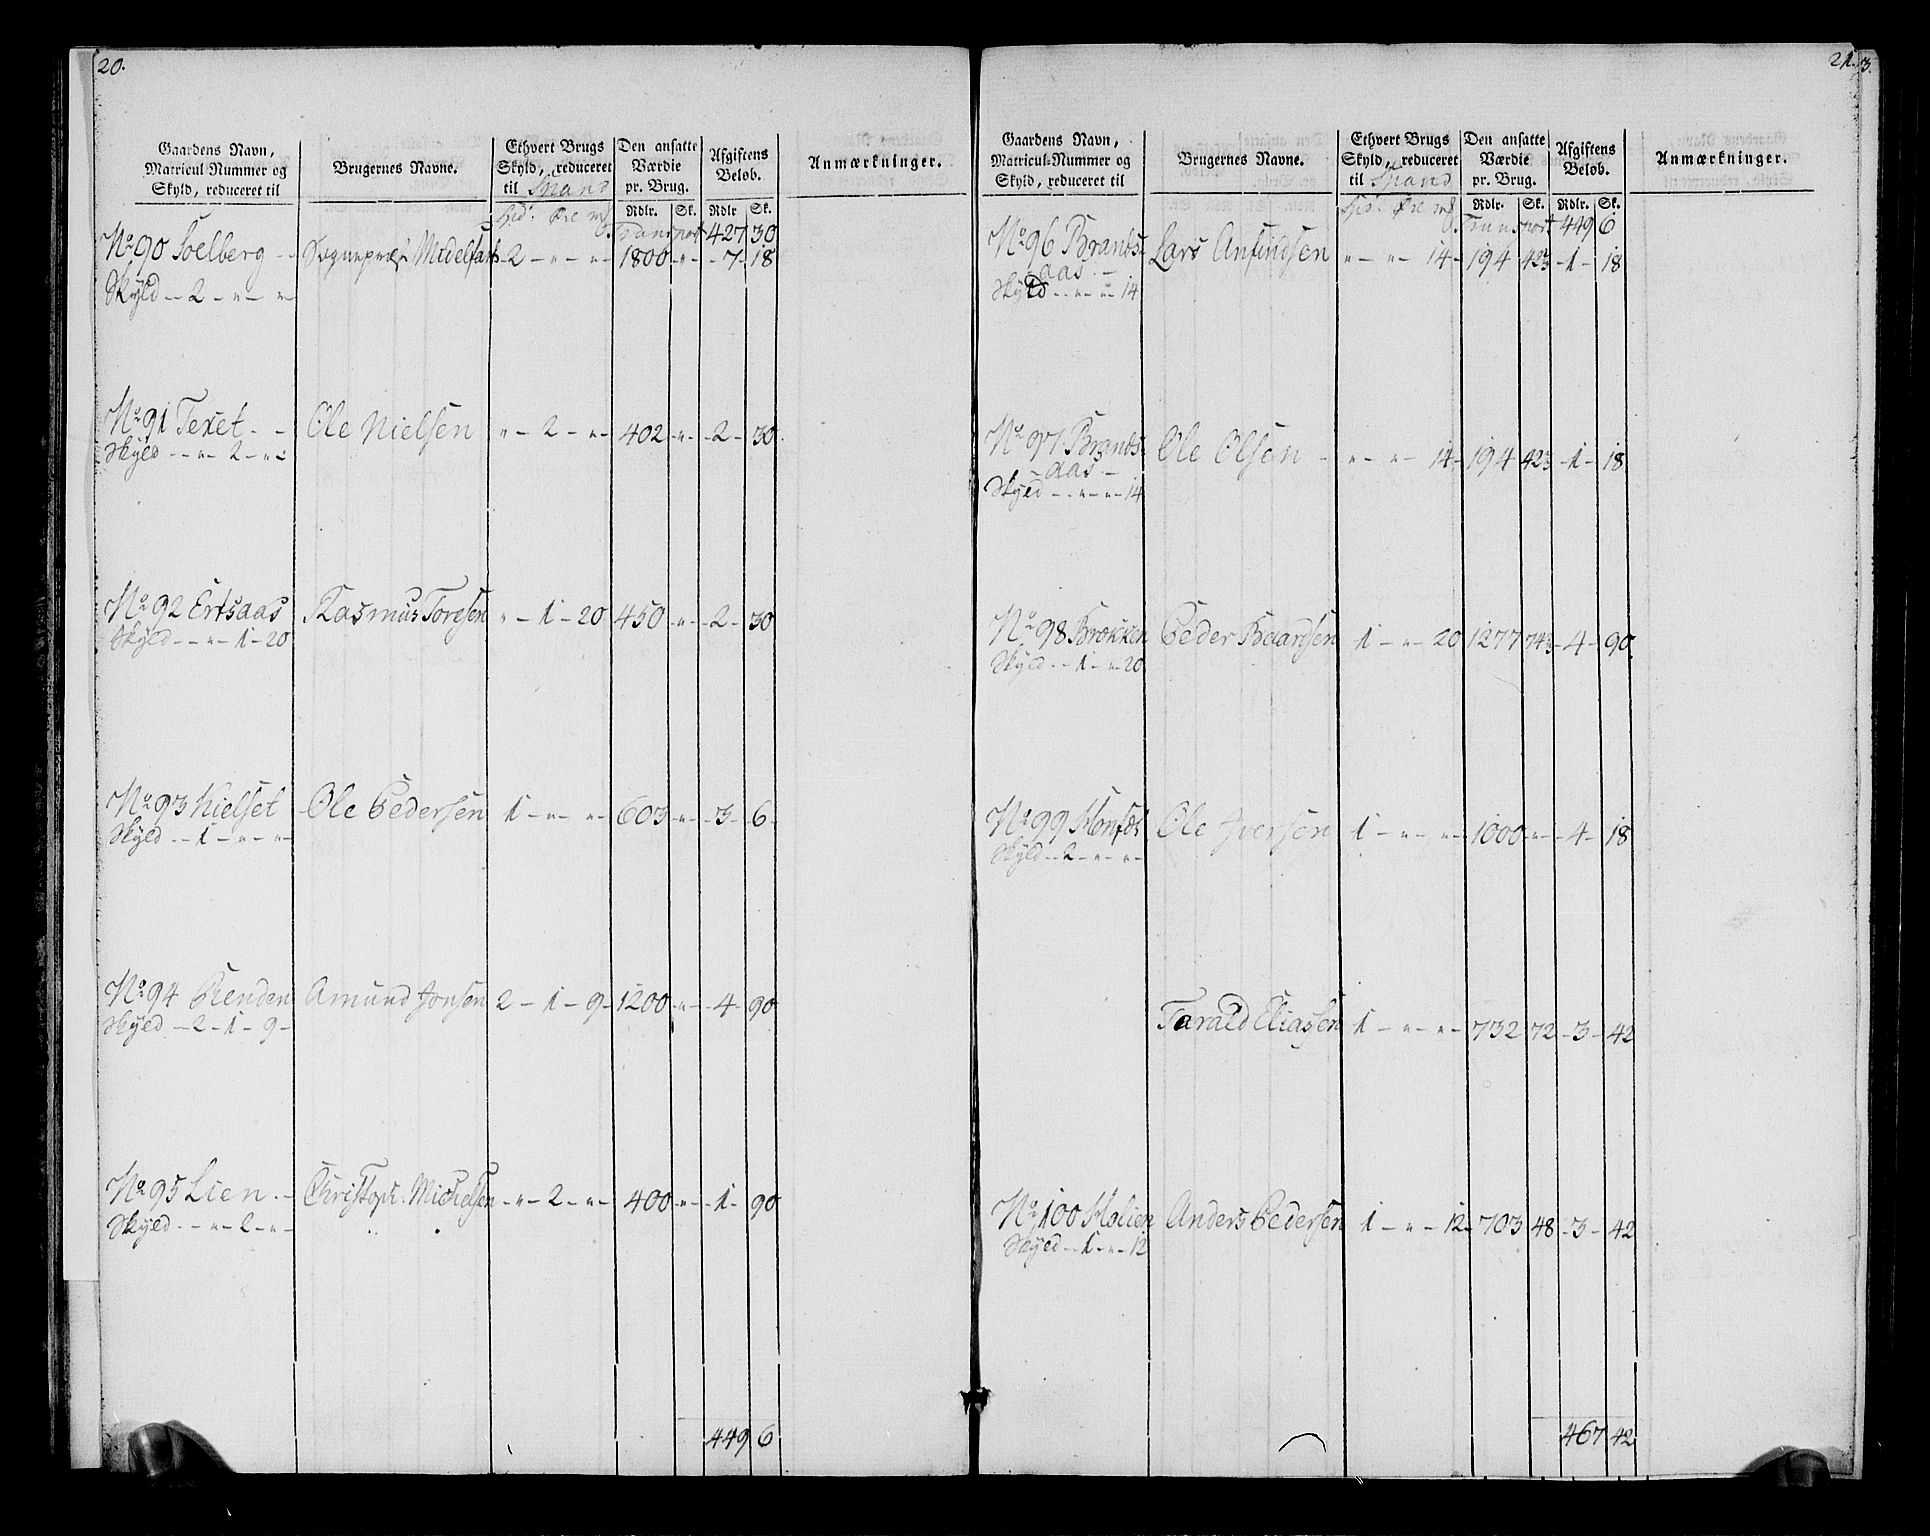 20.
Gaardens Navn, Matricul Nummer og Skyld, reduceret til
Brugernes Navne.
Ethvert Brugs Skyld, reduceret til Spand
Den ansatte Værdie pr. Brug.
Afgiftens Beløb.
Anmærkninger.
Spd. Øre mß Rdlr. Sk. Rdlr Sk.
Transport 427 30
No 90 Soelberg - - Sognepræst Midelfart 2 - „ - „ - 1800 - „ - - 7 - 18
Skyld - - 2 - „ - „
No 91 Texet - - Ole Nielsen „ - 2 - „ - 402 - „ - - 2 - 30
Skyld - - „ - 2 - „
No 92 Ertsaas Rasmus Toresen „ - 1 - 20 450 - „ - - 2 - 30
Skyld - - „ - 1 - 20
No 93 Kielset Ole Pedersen 1 - „ - „ - 603 - „ - - 3 - 6
Skyld - - 1 - „ - „
No 94 Renden Amund Jonsen 2 - 1 - 9 - 1200 - „ - - 4 - 90
Skyld - 2 - 1 - 9 -
No 95 Lien - - Christoph. Michelsen - „ - 2 - „ - 400 - „ - - 1 - 90
Skyld - - „ - 2 - „
449 6
21. 3.
Gaardens Navn, Matricul-Nummer og Skyld, reduceret til
Brugernes Navne.
Ethvert Brugs Skyld, reduceret til Spand
Den ansatte Værdie pr. Brug.
Afgiftens Beløb.
Anmærkninger.
Spd. Øre mß Rdlr. Sk. Rdlr. Sk.
Transport 449 6
No 96 Brandts- Lars Anfindsen „ - „ - 14 - 194 42 3 - 1 - 18
aas. -
Skyld - - „ - „ - 14
No 97 Brandts- Ole Olsen - „ - „ - 14 - 194 42 3 - 1 - 18
aas -
Skyld - - „ - „ - 14
No 98 Brækken Peder Baardsen 1 - „ - 20 1277 74 3 - 4 - 90.
Skyld - - 1 - „ - 20
No 99 Ole Iversen 1 - „ - „ - 1000 - „ - - 4 - 18
Skyld - - 2 - „ - „
Tarald Eliassen 1 - „ - „ - 732 72 - 3 - 42
No 100 Molien Anders Pedersen 1 - „ - 12 - 703 48 - 3 - 42
Skyld - - 1 - „ - 12
467 42